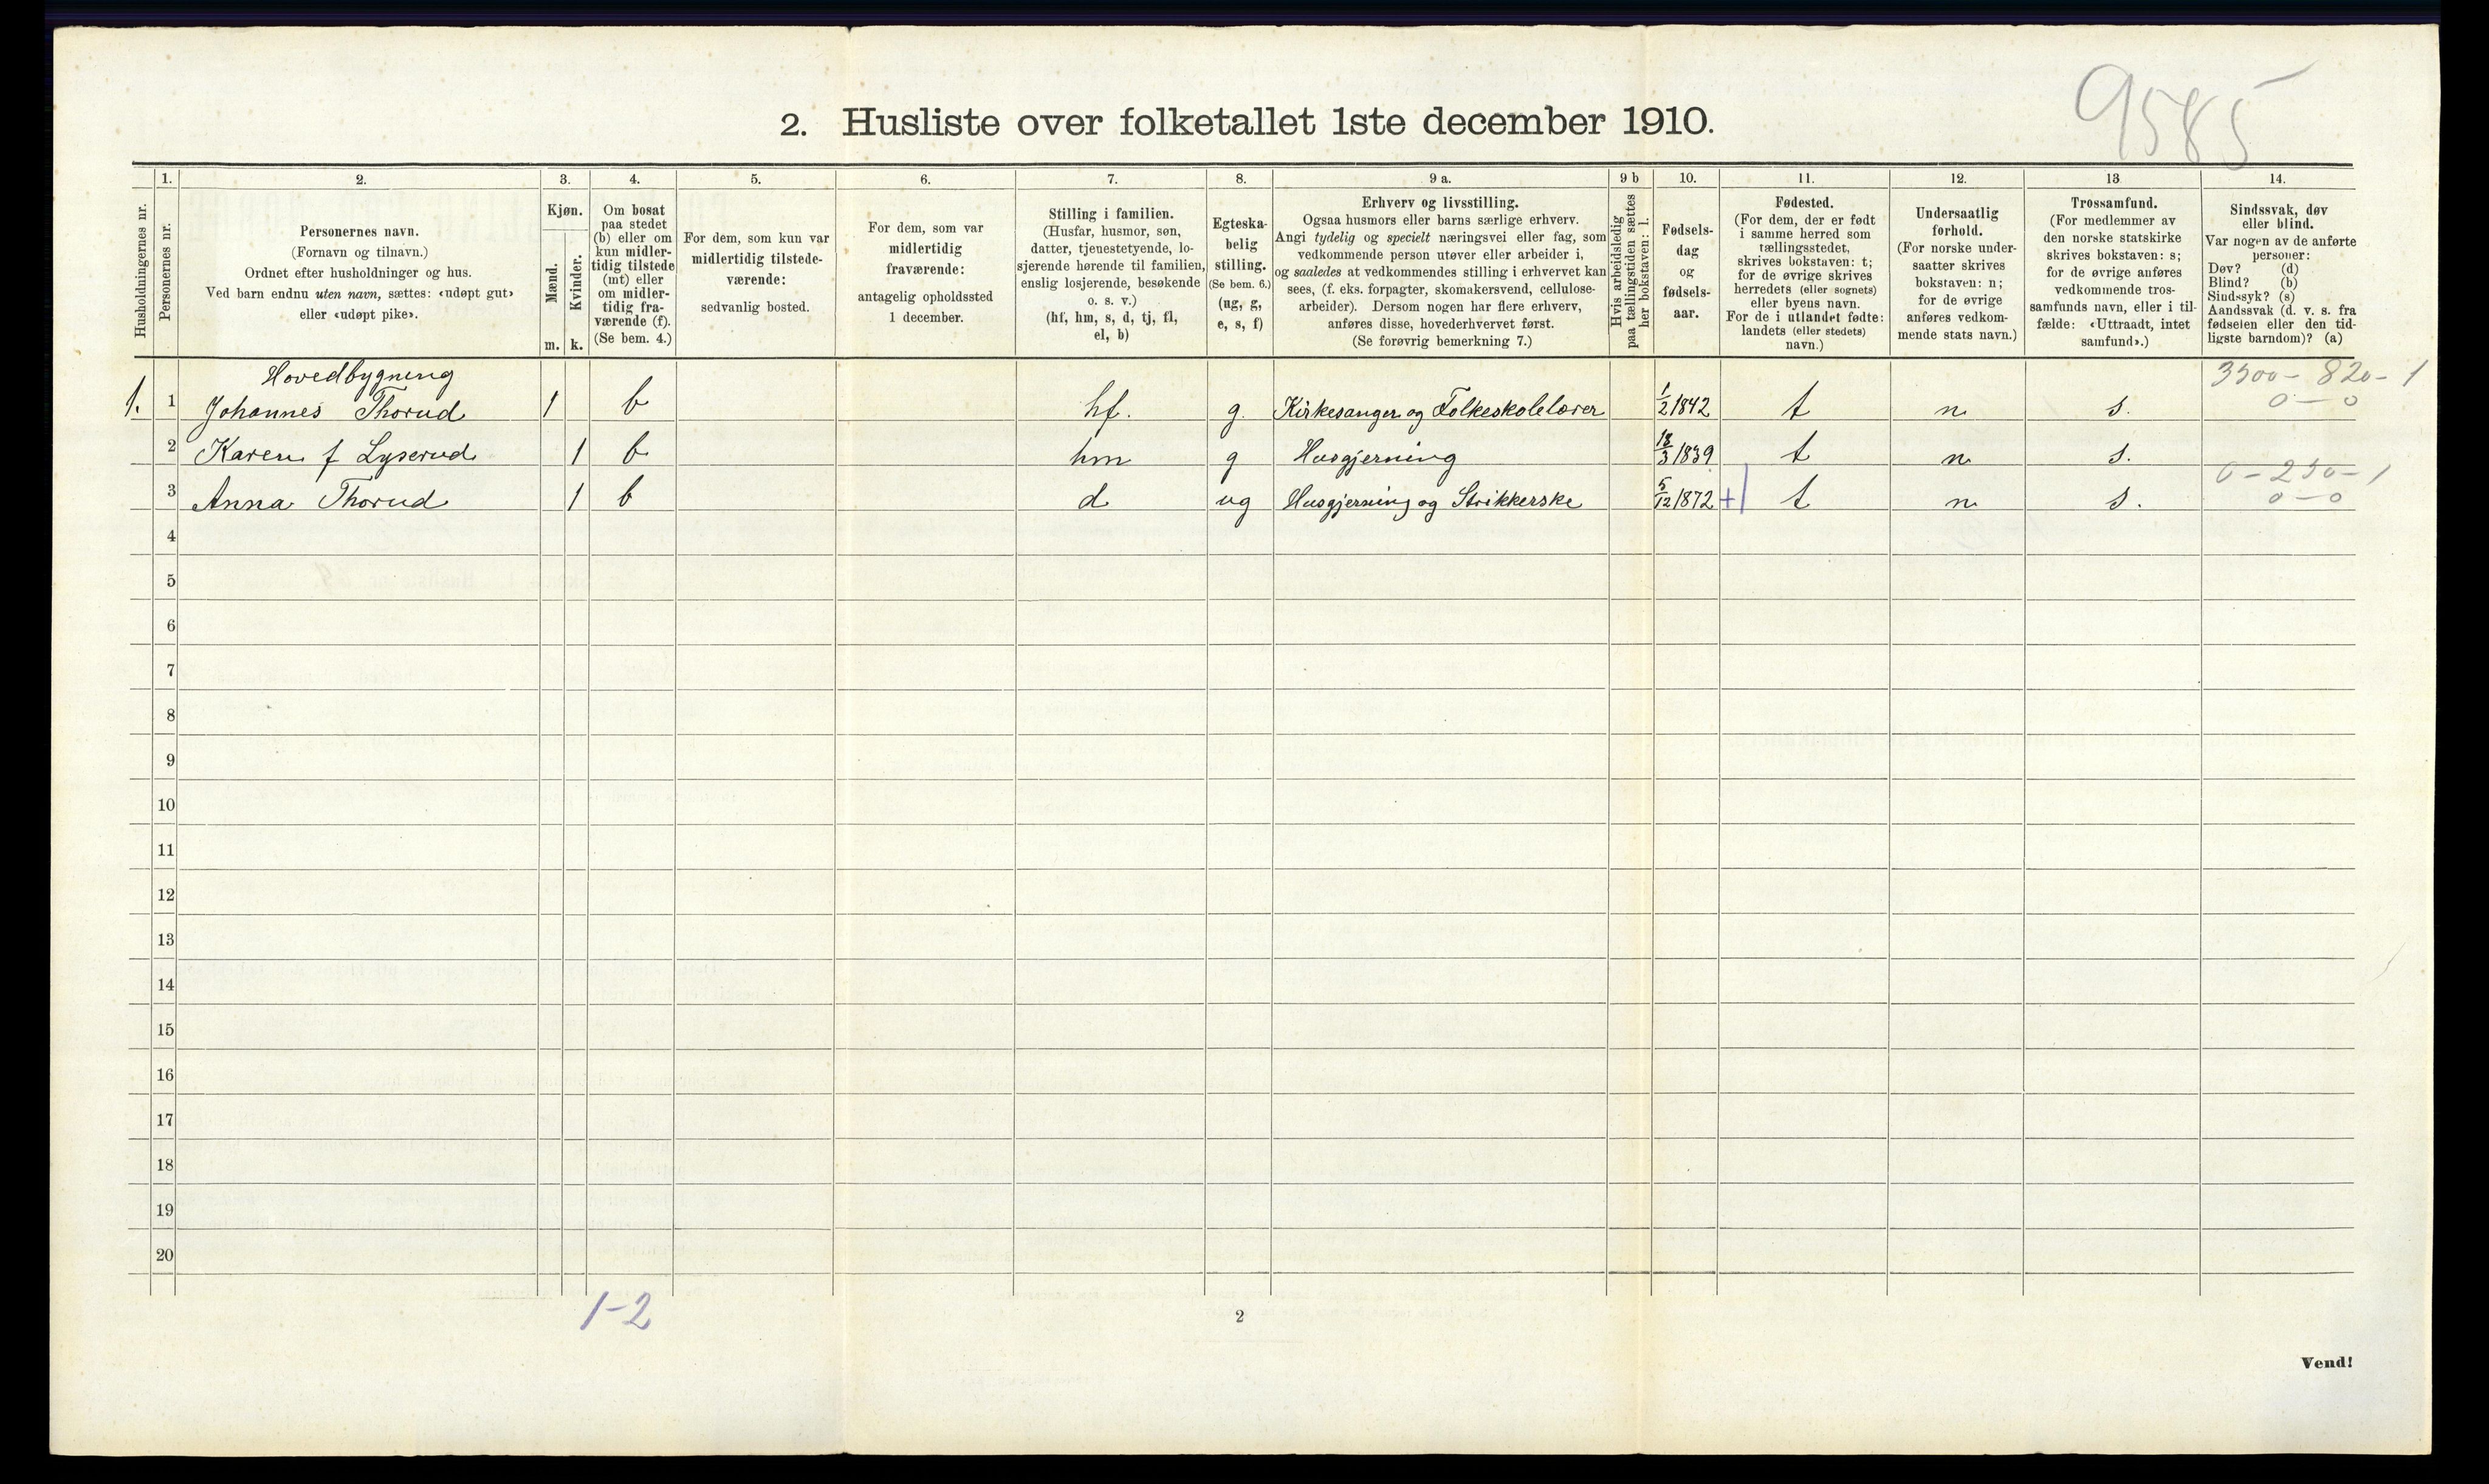 9585
2. Husliste over folketallet 1ste december 1910.
Husholdningernes nr.
1.
Personernes nr.
2.
Personernes navn.
(Fornavn og tilnavn.)
Ordnet efter husholdninger og hus.
Ved barn endnu uten navn, sættes: «udøpt gut»
eller «udøpt pike».
3.
Kjøn.
Mænd.
Kvinder.
m. k.
4.
Om bosat
paa stedet
(b) eller om
kun midler-
tidig tilstede
(mt) eller
om midler-
tidig fra-
værende (f).
(Se bem. 4.)
5.
For dem, som kun var
midlertidig tilstede-
værende:
sedvanlig bosted.
6.
For dem, som var
midlertidig
fraværende:
antagelig opholdssted
1 december.
7.
Stilling i familien.
(Husfar, husmor, søn,
datter, tjenestetyende, lo-
sjerende hørende til familien,
enslig losjerende, besøkende
o. s. v.)
(hf, hm, s, d, tj, fl,
el, b)
8.
Egteska-
belig
stilling.
(Se bem. 6.)
(ug, g,
e, s, f)
9 a.
Erhverv og livsstilling.
Ogsaa husmors eller barns særlige erhverv.
Angi tydelig og specielt næringsvei eller fag, som
vedkommende person utøver eller arbeider i,
og saaledes at vedkommendes stilling i erhvervet kan
sees, (f. eks. forpagter, skomakersvend, cellulose-
arbeider). Dersom nogen har flere erhverv,
anføres disse, hovederhvervet først.
(Se forøvrig bemerkning 7.)
9 b
Hvis arbeidsledig
paa tællingstiden sættes
her bokstaven: l.
10.
Fødsels-
dag
og
fødsels-
aar.
11.
Fødested.
(For dem, der er født
i samme herred som
tællingsstedet,
skrives bokstaven: t;
for de øvrige skrives
herredets (eller sognets)
eller byens navn.
For de i utlandet fødte:
landets (eller stedets)
navn.)
12.
Undersaatlig
forhold.
(For norske under-
saatter skrives
bokstaven: n;
for de øvrige
anføres vedkom-
mende stats navn.)
13
Trossamfund.
(For medlemmer av
den norske statskirke
skrives bokstaven: s;
for de øvrige anføres
vedkommende tros-
samfunds navn, eller i til-
fælde: «Uttraadt, intet
samfund».)
14.
Sindssvak, døv
eller blind.
Var nogen av de anførte
personer:
Døv? (d)
Blind? (b)
Sindssyk? (s)
Aandssvak (d. v. s. fra
fødselen eller den tid-
ligste barndom)? (a)
Hovedbygning 3300 - 820 - 1
1. 1 Johannes Thorud 1 b hf. g. Kirkesanger og Folkeskolelærer 1/2 1842 t n s. 0 - 0
2 Karen f Lyserud 1 b hm g Husgjerning 18/3 1839 t n s.
0 - 250 - 1
3 Anna Thorud 1 b d ug Husgjerning og Strikkerske 5/12 1872 + t n s. 0 - 0
4
5
6
7
8
9
10
11
12
13
14
15
16
17
18
19
20
1-2
2
Vend!